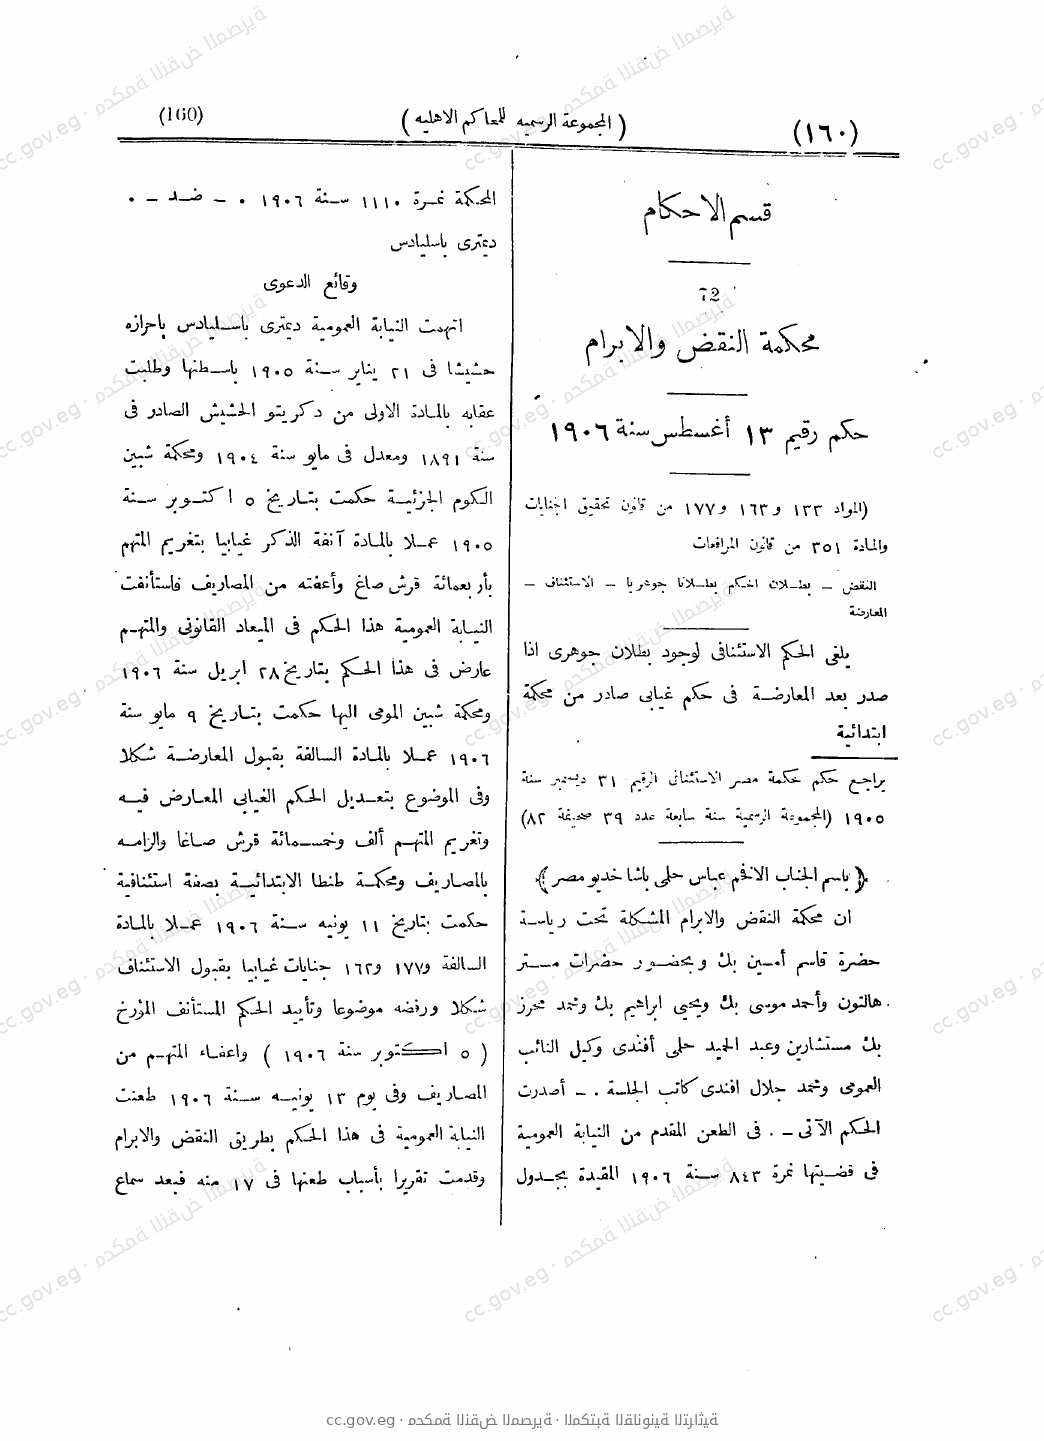 (١٦٠)
( المجموعة الرسميه للمحاكم الاهليه )
(160)
قسم الاحكام
72
محكمة النقض والابرام
حكم رقيم ١٣ أغسطس سنة ١٩٠٦
(المواد ١٣٣ و١٦٣ و١٧٧ من قانون تحقيق الجنايات
والمادة ٣٥١ من قانون المرافعات
النقض – بطلان الحكم بطلانا جوهريا – الاستئناف –
المعارضة
يلغى الحكم الاستئنافى لوجود بطلان جوهرى اذا
صدر بعد المعارضة فى حكم غيابى صادر من محكمة
ابتدائية
يراجع حكم محكمة مصر الاستئنافى الرقيم ٣١ ديسمبر سنة
١٩٠٥ (المجموعة الرسمية سنة سابعة عدد ٣٩ صحيفة ٨٢)
﴿ باسم الجناب الافخم عباس حلمى باشا خديو مصر ﴾
ان محكمة النقض والابرام المشكلة تحت رياسة
حضرة قاسم أمين بك وبحضور حضرات مستر
هالتون وأحمد موسى بك ويحيى ابراهيم بك ومحمد محرز
بك مستشارين وعبد الحميد حلمى أفندى وكيل النائب
العمومى ومحمد جلال افندى كاتب الجلسة . – أصدرت
الحكم الآتى – . فى الطعن المقدم من النيابة العمومية
فى قضيتها نمرة ٨٤٣ سنة ١٩٠٦ المقيدة بجدول
المحكمة نمرة ١١١٠ سنة ١٩٠٦ . – ضد – .
ديمترى باسليادس
وقائع الدعوى
اتهمت النيابة العمومية ديمترى باسليادس باحرازه
حشيشا فى ٢١ يناير سنة ١٩٠٥ باسطنها وطلبت
عقابه بالمادة الاولى من دكريتو الحشيش الصادر فى
سنة ١٨٩١ ومعدل فى مايو سنة ١٩٠٤ ومحكمة شبين
الكوم الجزئية حكمت بتاريخ ٥ اكتوبر سنة
١٩٠٥ عملا بالمادة آنفة الذكر غيابيا بتغريم المتهم
بأربعمائة قرش صاغ وأعفته من المصاريف فاستأنفت
النيابة العمومية هذا الحكم فى الميعاد القانونى والمتهم
عارض فى هذا الحكم بتاريخ ٢٨ ابريل سنة ١٩٠٦
ومحكمة شبين المومى اليها حكمت بتاريخ ٩ مايو سنة
١٩٠٦ عملا بالمادة السالفة بقبول المعارضة شكلا
وفى الموضوع بتعديل الحكم الغيابى المعارض فيه
وتغريم المتهم ألف وخمسمائة قرش صاغا والزامه
بالمصاريف ومحكمة طنطا الابتدائية بصفة استئنافية
حكمت بتاريخ ١١ يونيه سنة ١٩٠٦ عملا بالمادة
السالفة و١٧٧ و١٦٢ جنايات غيابيا بقبول الاستئناف
شكلا ورفضه موضوعا وتأييد الحكم المستأنف المؤرخ
( ٥ اكتوبر سنة ١٩٠٦ ) واعفاء المتهم من
المصاريف وفى يوم ١٣ يونيه سنة ١٩٠٦ طعنت
النيابة العمومية فى هذا الحكم بطريق النقض والابرام
وقدمت تقريرا بأسباب طعنها فى ١٧ منه فبعد سماع
cc.gov.eg · محكمة النقض المصرية · المكتبة القانونية التراثية